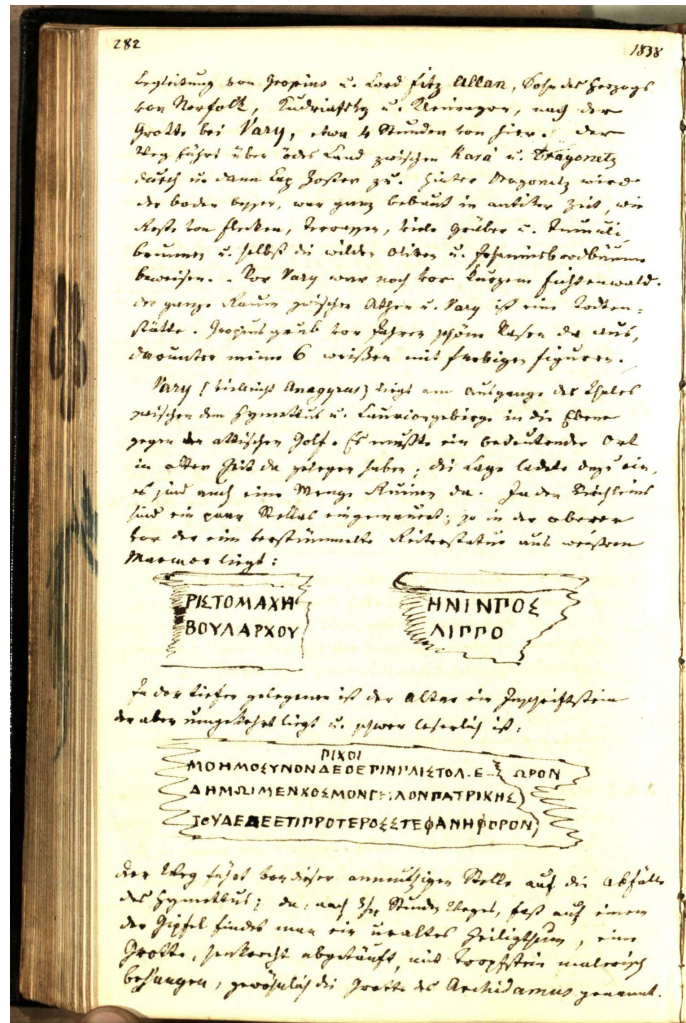 282 1838
Begleitung von Gropius u. Lord Fitz Allan, Sohn des Herzogs
von Norfolk, u. nach der
Grotte bei Vary, etwa 4 Stunden von hier. Der
Weg führt über ödes Land zwischen Kara u. Tragonetz
durch u. dann Cap Zoster zu. Hinter Tragonetz wird
der Boden besser, war ganz bebaut in antiker Zeit, wie
Reste von Flecken, Terrassen, viele Gräber u. Tumuli
Brunnen u. selbst die wilden Oliven u. Johannisbrodbäume
beweisen. Vor Vary war noch vor Kurzem Fichtenwald.
Der ganze Raum zwischen Athen u. Vary ist eine Todten-
stätte. Gropius grub vor Jahren schöne Vasen da aus,
darunter meine 6 weißen mit farbigen Figuren.
Vary (vielleicht Anagyrus) liegt am Ausgange des Thales
zwischen dem Hymettus u. Lauriongebirge in die Ebene
gegen den attischen Golf. Es mußte ein bedeutender Ort
in alter Zeit da gelegen haben; die Lage ladete dazu ein,
es sind auch eine Menge Ruinen da. In den Kirchleins
sind ein paar Stellas eingemauert; so in der oberen
vor der eine verstümmelte Reiterstatue aus weißem
Marmor liegt:
ΡΙΣΤΟΜΑΧΗ ΗΝΙΝΠΟΣ
ΒΟΥΛΑΡΧΟΥ ΛΙΠΠΟ
In der tiefer gelegenen ist der Altar ein Inschriftstein
der aber umgekehrt liegt u. schwer leserlich ist:
ΡΙΧΟΙ
ΜΟΗΜΟΣΥΝΟΝΔΕΘΕΠΙΝΙΓΛΙΣΤΟΛ.Ε ΩΡΟΝ
ΔΗΜΩΙΜΕΝΧΟΣΜΟΝΓ::ΛΟΝΠΑΤΡΙΚΗΣ
ΤΟΥΔΕΔΕΕΤΙΠΡΟΤΕΡΟΣΣΤΕΦΑΝΗΦΟΡΟΝ
Der Weg führt von dieser anmuthigen Stelle auf die Abfälle
des Hymettus; da, nach Stunden Weges, fast auf einem
der Gipfel findet man ein uraltes Heiligthum, eine
Grotte, senkrecht abgetäuft, mit Tropfstein malerisch
behangen, gewöhnlich die Grotte des Archidamus genannt.